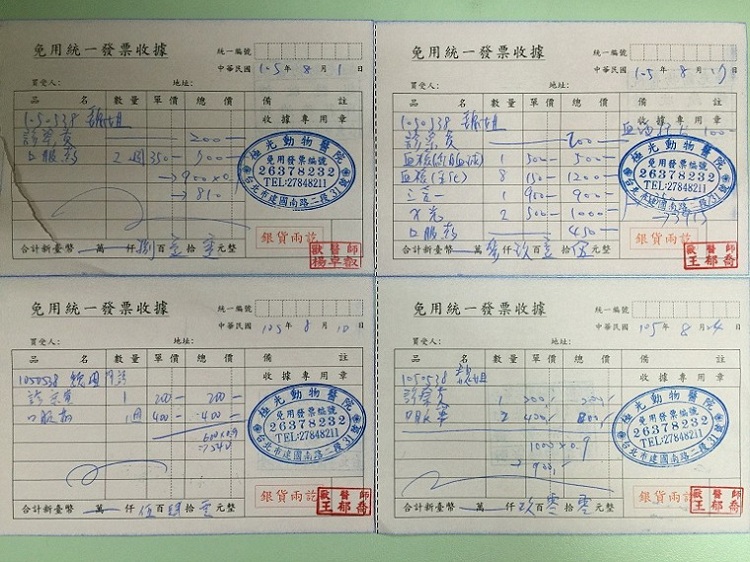 免用統一發票收據
統一編號
中華民國 105年 8月 1日
買受人： 地址：
品名 數量 單價 總價 備註
收據專用章
1050538
診察費 200-
口服藥 2週 350-
→900×0.9
→810
極光動物醫院
免用發票編號
26378232
TEL:27848211
台北市建國南路二段31號
銀貨兩訖
合計新臺幣 萬 仟 捌百壹拾零元整
獸醫師
楊卓叡
免用統一發票收據
統一編號
中華民國 105年 8月 日
買受人： 地址：
品名 數量 單價 總價 備註
收據專用章
1050538
診察費 200-
1000-
血檢 1 500- 500-
血檢(生化) 8 150- 1200-
1 900- 900-
X光 2 500- 1000-
口服藥 450-
極光動物醫院
免用發票編號
26378232
TEL:27848211
台北市建國南路二段31號
銀貨兩訖
合計新臺幣 萬 仟玖百壹拾伍元整
獸醫師
王郁喬
免用統一發票收據
統一編號
中華民國 105年 8月 10日
買受人： 地址：
品名 數量 單價 總價 備註
收據專用章
1050538
診察費 1 200- 200-
口服藥 1週 400- 400-
600×0.9
→540
極光動物醫院
免用發票編號
26378232
TEL:27848211
台北市建國南路二段31號
銀貨兩訖
合計新臺幣 萬 仟伍百肆拾零元整
獸醫師
王郁喬
免用統一發票收據
統一編號
中華民國 105年 8月 24日
買受人： 地址：
品名 數量 單價 總價 備註
收據專用章
1050538
診察費 1 200- 200-
口服藥 2 400- 800-
1000×0.9
→900
極光動物醫院
免用發票編號
26378232
TEL:27848211
台北市建國南路二段31號
銀貨兩訖
合計新臺幣 萬 仟玖百零拾零元整
獸醫師
王郁喬